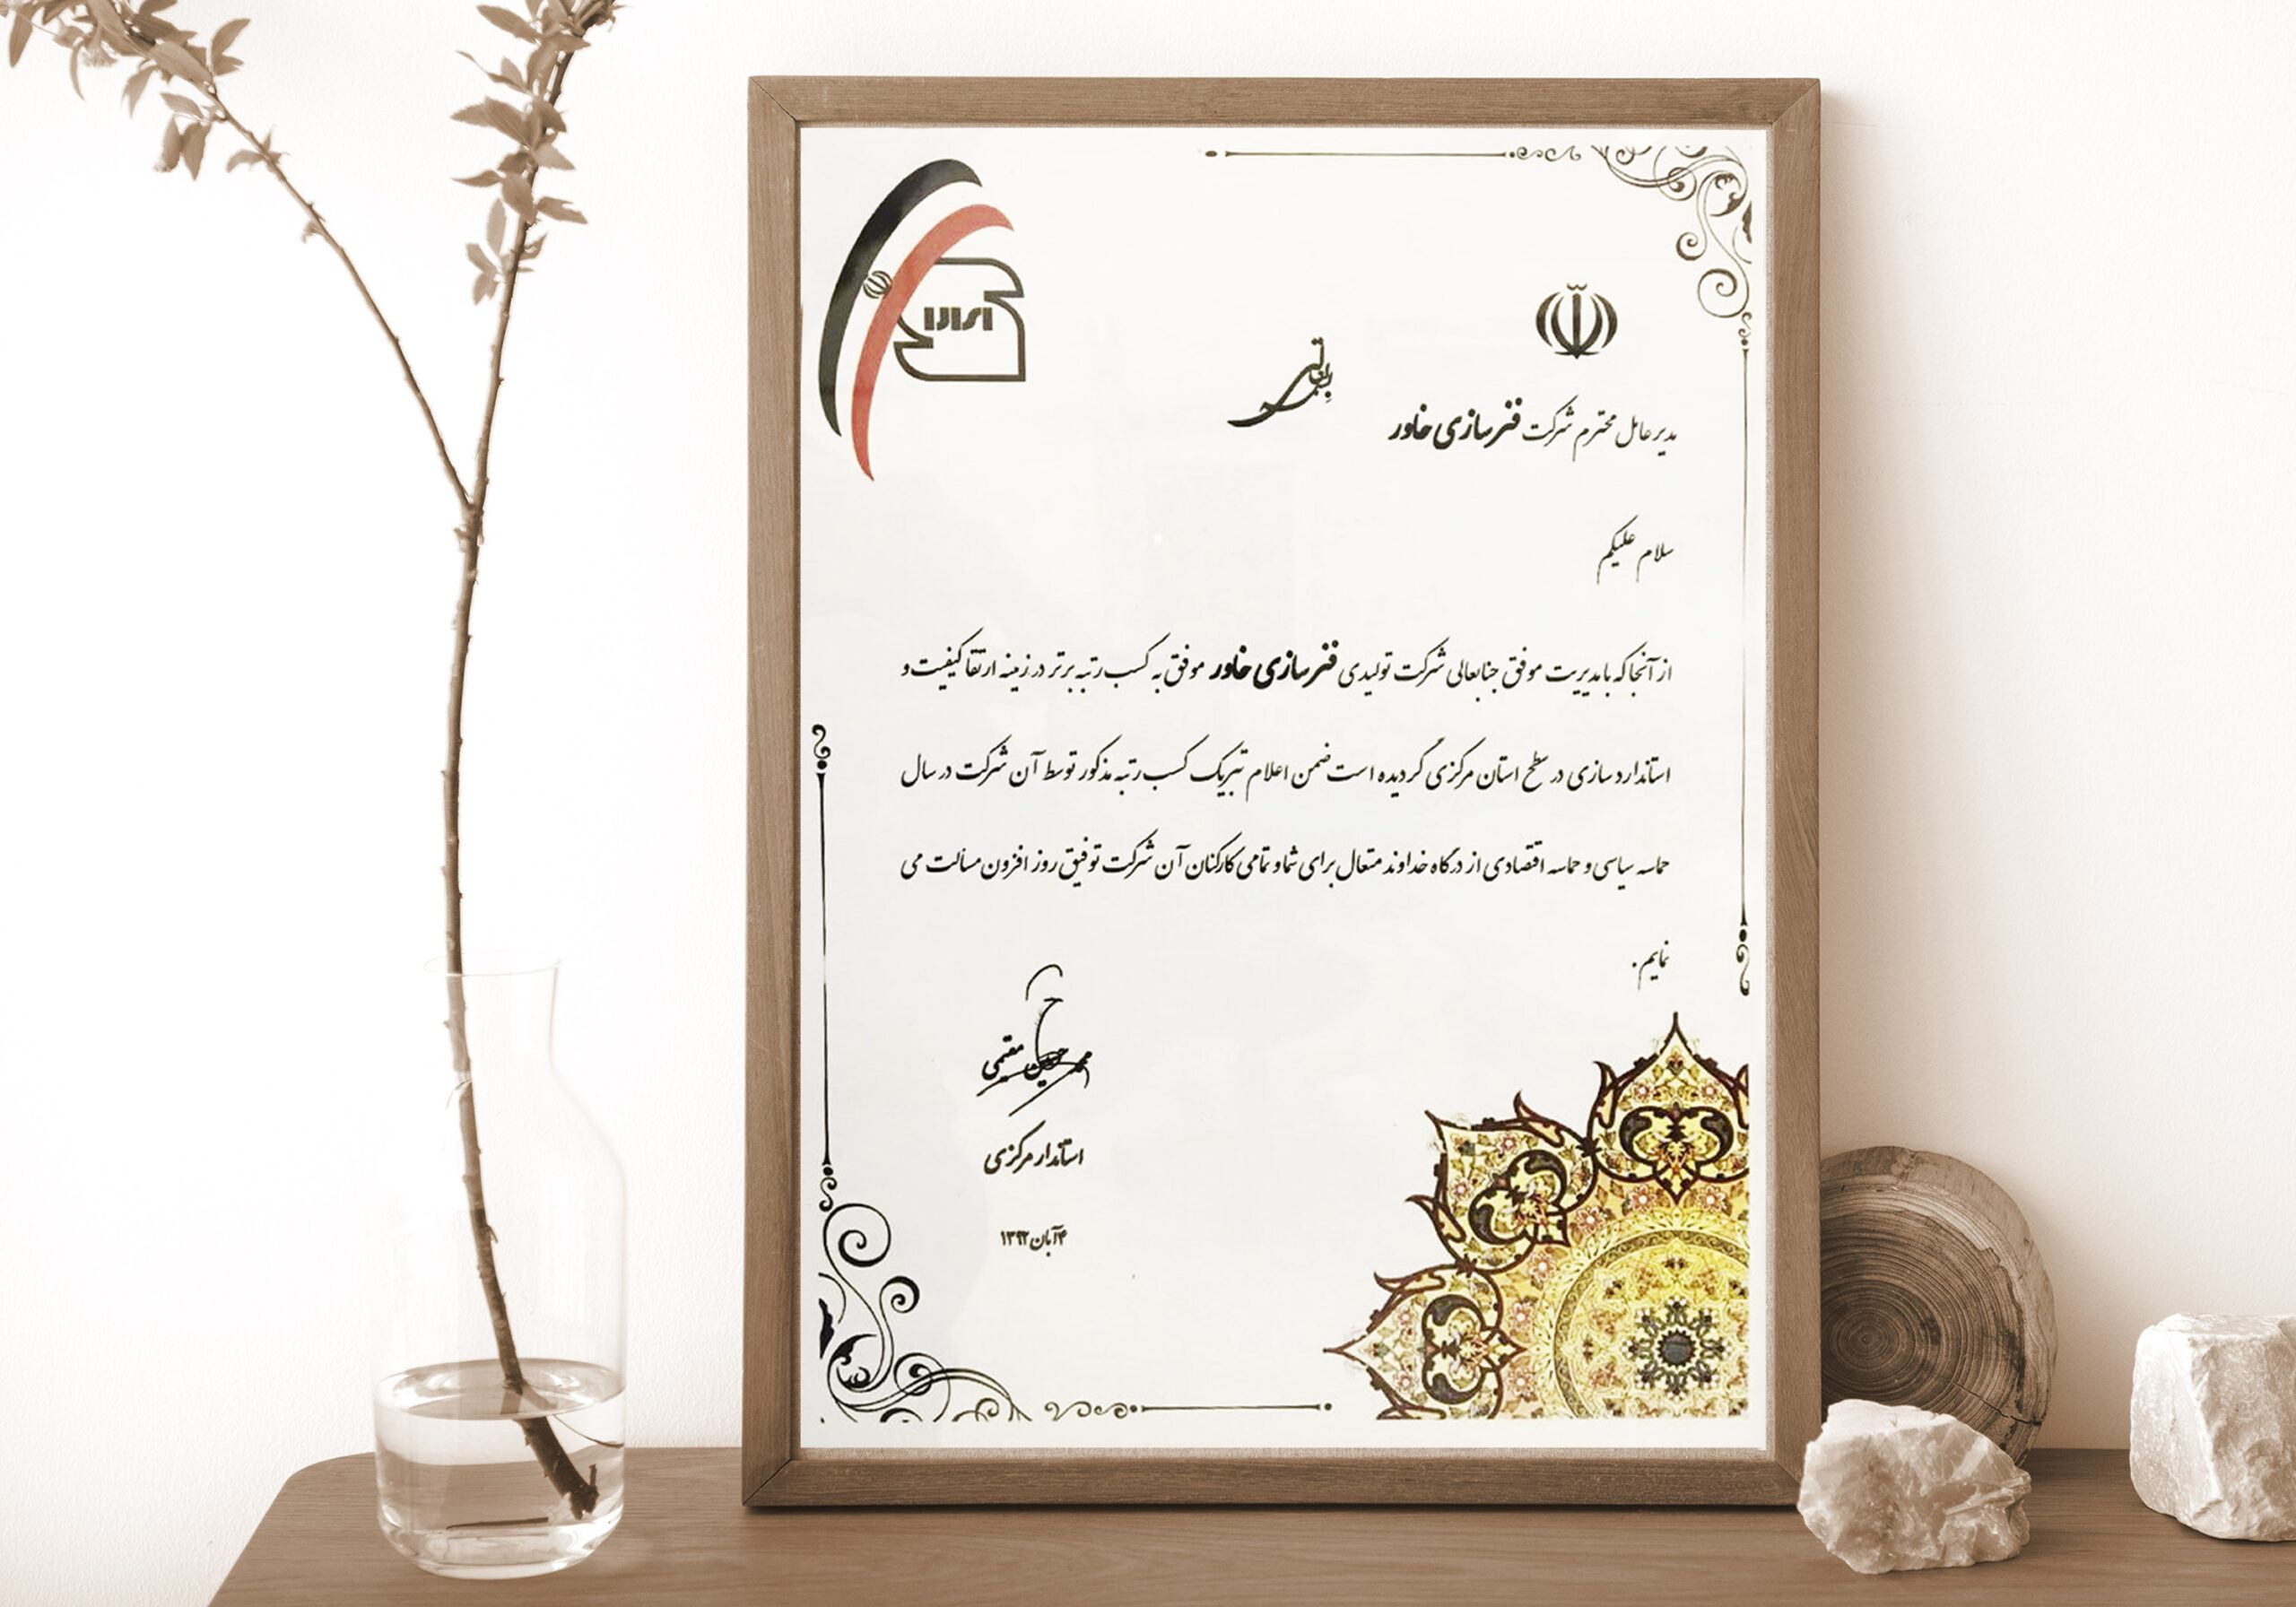 بسمه تعالی
مدیرعامل محترم شرکت فنرسازی خاور
سلام علیکم
از آنجا که با مدیریت موفق جنابعالی شرکت تولیدی فنرسازی خاور موفق به کسب رتبه برتر در زمینه ارتقا کیفیت و
استاندارد سازی در سطح استان مرکزی گردیده است ضمن اعلام تبریک کسب رتبه مذکور توسط آن شرکت در سال
حماسه سیاسی و حماسه اقتصادی از درگاه خداوند متعال برای شما و تمامی کارکنان آن شرکت توفیق روز افزون مسالت می
نمایم.
محمد حسین مقیمی
استاندار مرکزی
۴آبان ۱۳۹۲